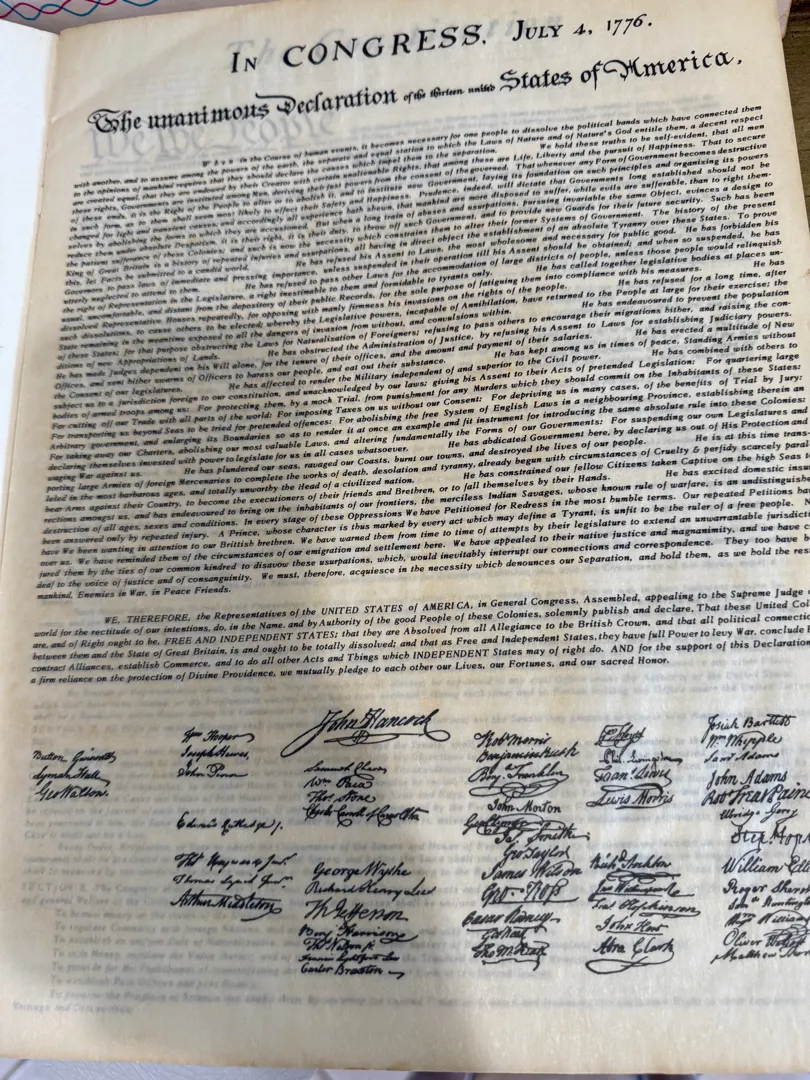 IN CONGRESS. JULY 4, 1776.
The unanimous Declaration of the thirteen united States of America,
When in the Course of human events, it becomes necessary for one people to dissolve the political bands which have connected them
with another, and to assume among the powers of the earth, the separate and equal station to which the Laws of Nature and of Nature's God entitle them, a decent respect
to the opinions of mankind requires that they should declare the causes which impel them to the separation. We hold these truths to be self-evident, that all men
are created equal, that they are endowed by their Creator with certain unalienable Rights, that among these are Life, Liberty and the pursuit of Happiness. That to secure
these rights, Governments are instituted among Men, deriving their just powers from the consent of the governed. That whenever any Form of Government becomes destructive
of these ends, it is the Right of the People to alter or to abolish it, and to institute new Government, laying its foundation on such principles and organizing its powers
in such form, as to them shall seem most likely to effect their Safety and Happiness. Prudence, indeed, will dictate that Governments long established should not be
changed for light and transient causes; and accordingly all experience hath shewn, that mankind are more disposed to suffer, while evils are sufferable, than to right them-
selves by abolishing the forms to which they are accustomed. But when a long train of abuses and usurpations, pursuing invariably the same Object, evinces a design to
reduce them under absolute Despotism, it is their right, it is their duty, to throw off such Government, and to provide new Guards for their future security. Such has been
the patient sufferance of these Colonies; and such is now the necessity which constrains them to alter their former Systems of Government. The history of the present
King of Great Britain is a history of repeated injuries and usurpations, all having in direct object the establishment of an absolute Tyranny over these States. To prove
this, let Facts be submitted to a candid world. He has refused his Assent to Laws, the most wholesome and necessary for public good. He has forbidden his
Governors to pass laws of immediate and pressing importance, unless suspended in their operation till his Assent should be obtained; and when so suspended, he has
utterly neglected to attend to them. He has refused to pass other Laws for the accommodation of large districts of people, unless those people would relinquish
the right of Representation in the Legislature, a right inestimable to them and formidable to tyrants only. He has called together legislative bodies at places un-
usual, uncomfortable, and distant from the depository of their public Records, for the sole purpose of fatiguing them into compliance with his measures. He has
dissolved Representative Houses repeatedly, for opposing with manly firmness his invasions on the rights of the people. He has refused for a long time, after
such dissolutions, to cause others to be elected; whereby the Legislative powers, incapable of Annihilation, have returned to the People at large for their exercise; the
State remaining in the meantime exposed to all the dangers of invasion from without, and convulsions within. He has endeavoured to prevent the population
of these States; for that purpose obstructing the Laws for Naturalization of Foreigners; refusing to pass others to encourage their migrations hither, and raising the con-
ditions of new Appropriations of Lands. He has obstructed the Administration of Justice, by refusing his Assent to Laws for establishing Judiciary powers.
He has made Judges dependent on his Will alone, for the tenure of their offices, and the amount and payment of their salaries. He has erected a multitude of New
Offices, and sent hither swarms of Officers to harass our people, and eat out their substance. He has kept among us in times of peace, Standing Armies without
the Consent of our legislatures. He has affected to render the Military independent of and superior to the Civil power. He has combined with others to
subject us to a jurisdiction foreign to our constitution, and unacknowledged by our laws; giving his Assent to their Acts of pretended Legislation: For quartering large
bodies of armed troops among us: For protecting them, by a mock Trial, from punishment for any Murders which they should commit on the Inhabitants of these States:
For cutting off our Trade with all parts of the world: For imposing Taxes on us without our Consent: For depriving us in many cases, of the benefits of Trial by Jury:
For transporting us beyond Seas to be tried for pretended offences: For abolishing the free System of English Laws in a neighbouring Province, establishing therein an
Arbitrary government, and enlarging its Boundaries so as to render it at once an example and fit instrument for introducing the same absolute rule into these Colonies:
For taking away our Charters, abolishing our most valuable Laws, and altering fundamentally the Forms of our Governments: For suspending our own Legislatures and
declaring themselves invested with power to legislate for us in all cases whatsoever. He has abdicated Government here, by declaring us out of His Protection and
waging War against us. He has plundered our seas, ravaged our Coasts, burnt our towns, and destroyed the lives of our people. He is at this time trans-
porting large Armies of foreign Mercenaries to complete the works of death, desolation and tyranny, already begun with circumstances of Cruelty & perfidy scarcely paral-
leled in the most barbarous ages, and totally unworthy the Head of a civilized nation. He has constrained our fellow Citizens taken Captive on the high Seas to
bear Arms against their Country, to become the executioners of their friends and Brethren, or to fall themselves by their Hands. He has excited domestic insur
rections amongst us, and has endeavoured to bring on the inhabitants of our frontiers, the merciless Indian Savages, whose known rule of warfare, is an undistinguishe
destruction of all ages, sexes and conditions. In every stage of these Oppressions We have Petitioned for Redress in the most humble terms. Our repeated Petitions hav
been answered only by repeated injury. A Prince, whose character is thus marked by every act which may define a Tyrant, is unfit to be the ruler of a free people. N
have We been wanting in attention to our Brittish brethren. We have warned them from time to time of attempts by their legislature to extend an unwarrantable jurisdicti
over us. We have reminded them of the circumstances of our emigration and settlement here. We have appealed to their native justice and magnanimity, and we have c
jured them by the ties of our common kindred to disavow these usurpations, which, would inevitably interrupt our connections and correspondence. They too have b
deaf to the voice of justice and of consanguinity. We must, therefore, acquiesce in the necessity which denounces our Separation, and hold them, as we hold the res
mankind, Enemies in War, in Peace Friends.
WE, THEREFORE, the Representatives of the UNITED STATES of AMERICA, in General Congress, Assembled, appealing to the Supreme Judge
world for the rectitude of our intentions, do, in the Name, and by Authority of the good People of these Colonies, solemnly publish and declare, That these United Col
are, and of Right ought to be, FREE AND INDEPENDENT STATES; that they are Absolved from all Allegiance to the British Crown, and that all political connectio
between them and the State of Great Britain, is and ought to be totally dissolved; and that as Free and Independent States, they have full Power to levy War, conclude
contract Alliances, establish Commerce, and to do all other Acts and Things which INDEPENDENT STATES may of right do. AND for the support of this Declaration
a firm reliance on the protection of Divine Providence, we mutually pledge to each other our Lives, our Fortunes, and our sacred Honor.
Button Gwinnett
Lyman Hall
Geo Walton.
Wm Hooper
Joseph Hewes,
John Penn
Edward Rutledge /.
Thos Heyward Junr.
Thomas Lynch Junr.
Arthur Middleton
John Hancock
Samuel Chase
Wm Paca
Thos Stone
Charles Carroll of Carrollton
George Wythe
Richard Henry Lee
Th Jefferson
Benj Harrison
Thos Nelson jr.
Francis Lightfoot Lee
Carter Braxton
Robt Morris
Benjamin Rush
Benj. Franklin
John Morton
Geo Clymer
Jas. Smith
Geo. Taylor
James Wilson
Geo. Ross
Caesar Rodney
Geo Read
Tho M:Kean
Wm Floyd
Phil. Livingston
Frans. Lewis
Lewis Morris
Richd. Stockton
Jno Witherspoon
Fras. Hopkinson
John Hart
Abra Clark
Josiah Bartlett
Wm Whipple
Saml Adams
John Adams
Robt Treat Paine
Elbridge Gerry
Step. Hopk
William Elle
Roger Sherm
Saml Huntingt
Wm Williams
Oliver Wolcott
Matthew Thorn